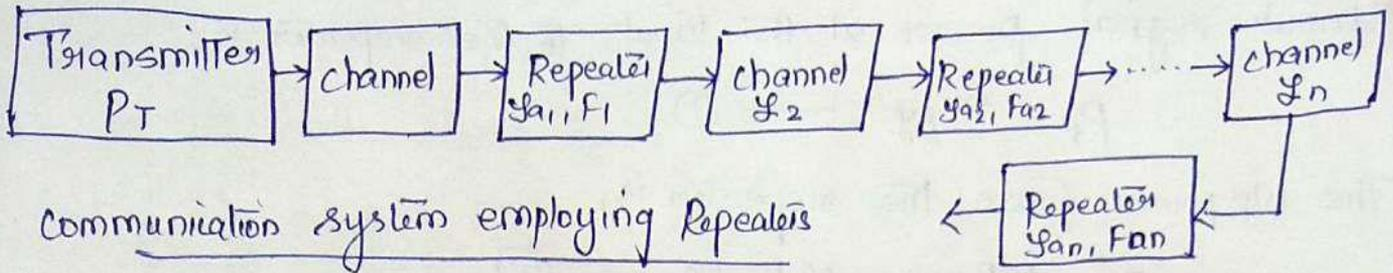 Transmitter
PT
channel
Repeater
ℒa1, F1
channel
ℒ2
Repeater
ℒa2, Fa2
.....
channel
ℒn
Repeater
ℒan, Fan
communication system employing Repeaters